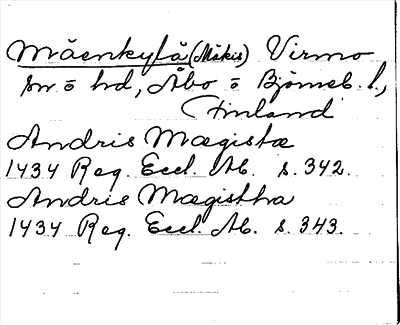 Mäenkylä (Mäkis) Virmo
sn o hd, Åbo o Björneb. l.,
Finland
Andris Mægistæ
1434 Reg. Eccl. Ab. s. 342.
Andris Mægisthra
1434 Reg. Eccl. Ab. s. 343.